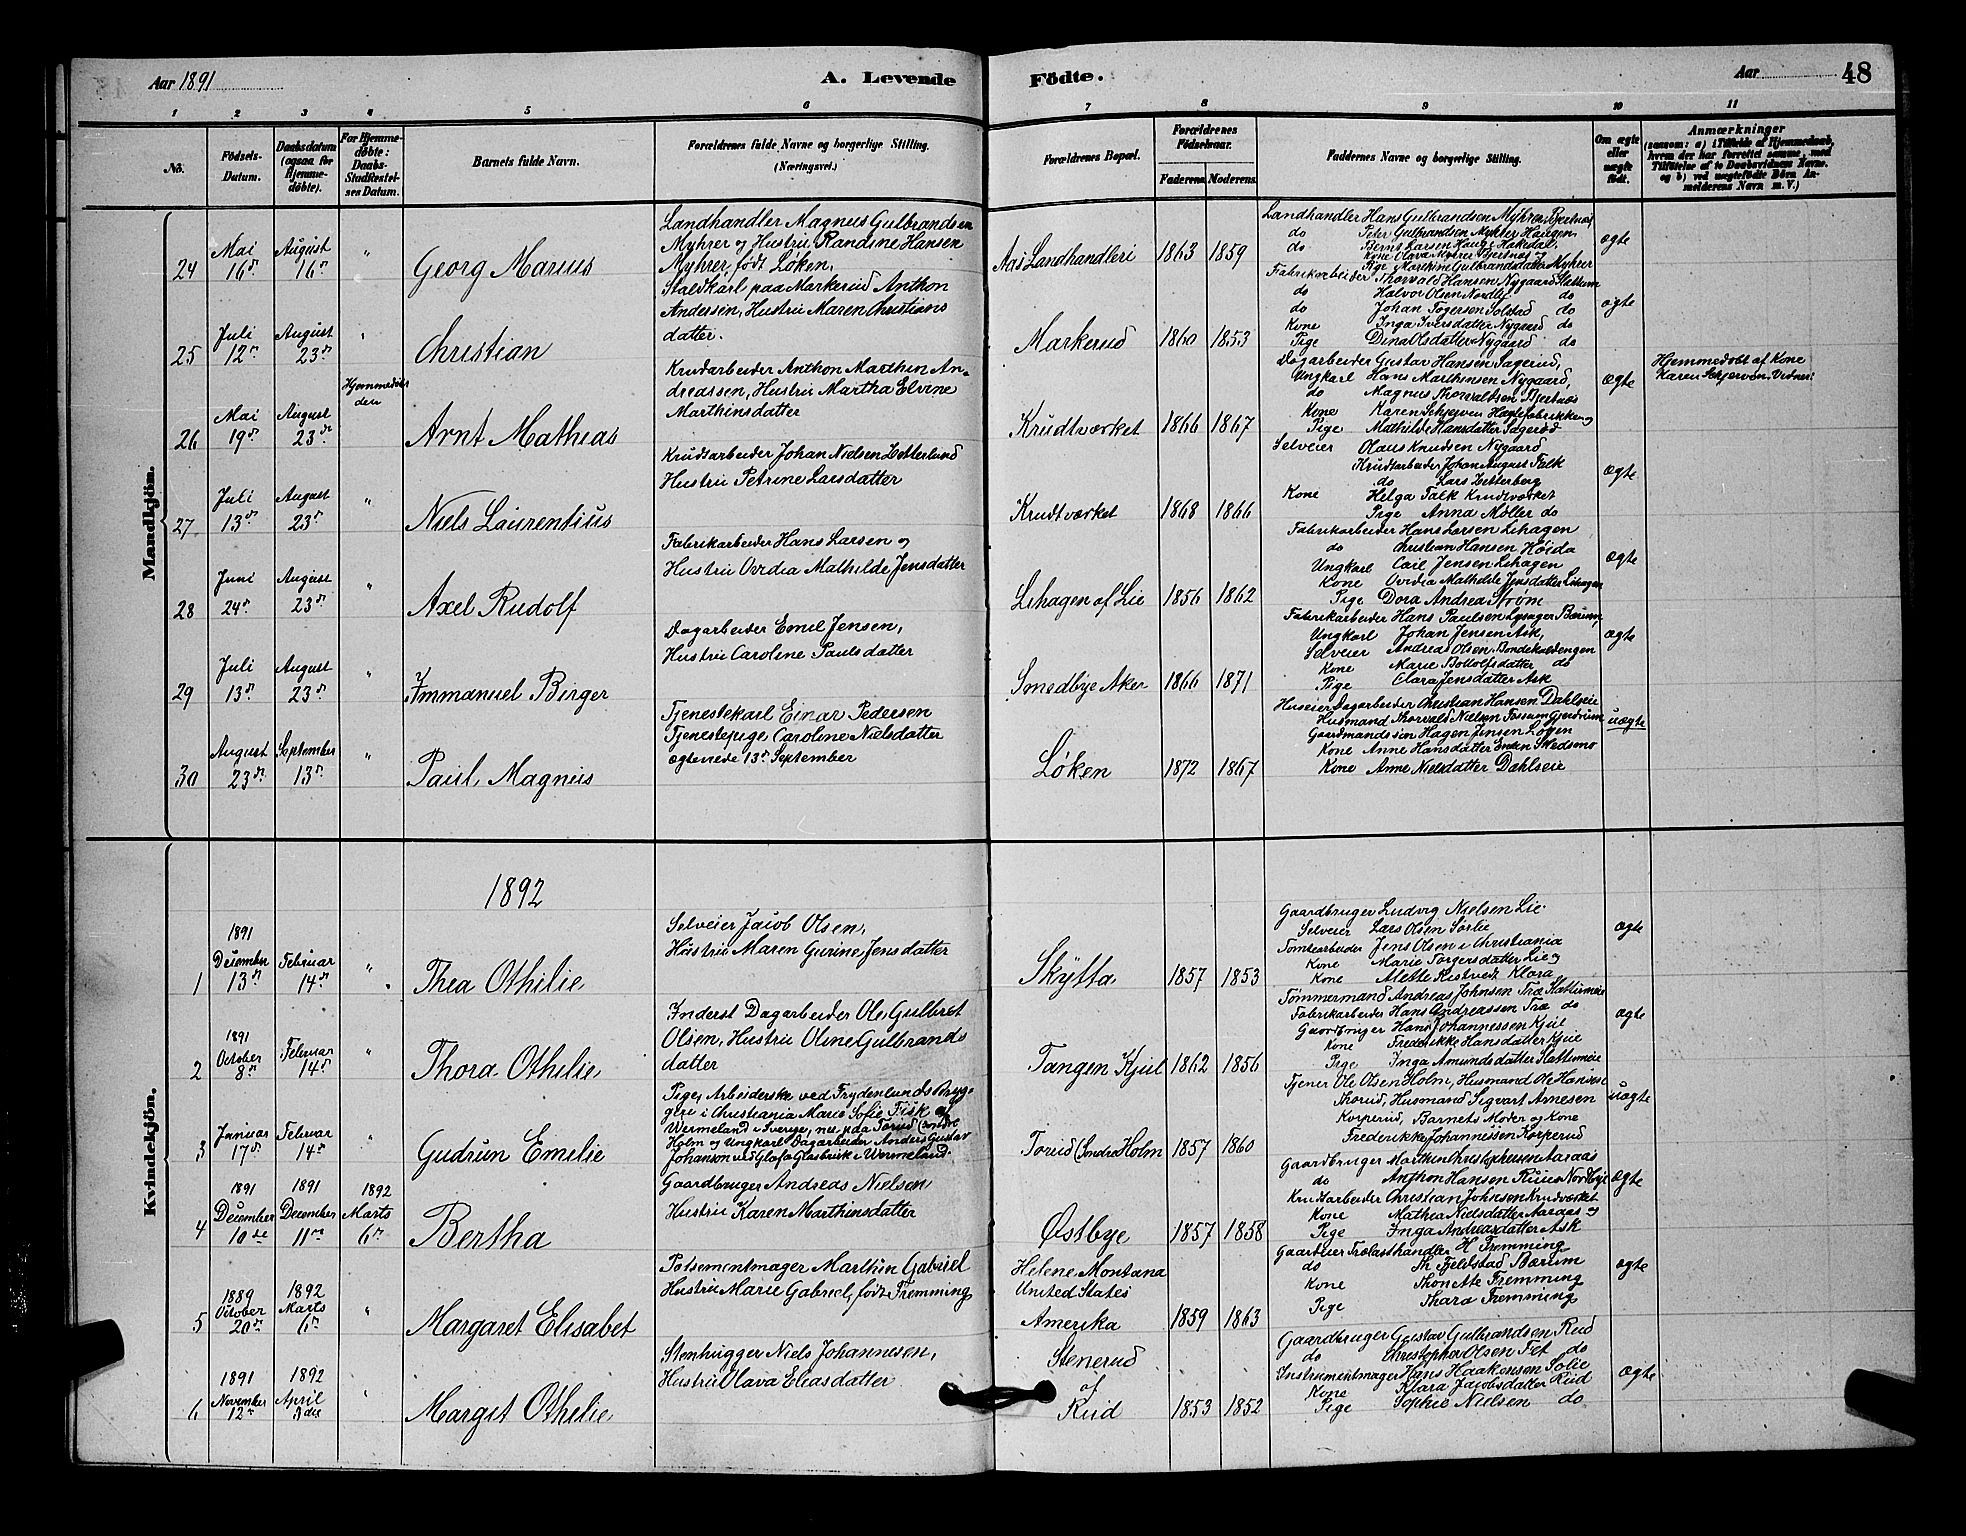 Aar 1891
A. Levende Födte.
Aar
48
1 2 3 4 5 6 7 8 9 10 11
No.
Födsels-Datum.
Daabsdatum (ogsaa for Hjemmedöbte).
For Hjemmedöbte: Daabs-Stadfæstelses Datum.
Barnets fulde Navn.
Forældrenes fulde Navne og borgerlige Stilling. (Næringsvei.)
Forældrenes Bopæl.
Forældrenes Födselsaar.
Faderens. Moderens.
Faddernes Navne og borgerlige Stilling.
Om ægte eller uægte födt.
Anmærkninger
(saasom: a) i Tilfælde af Hjemmedaab, hvem der har forrettet samme, med Tilföielse af to Daabsvidners Navne, og b) ved uægtefödte Börn Anmelderens Navn m. V.)
Mandkjön.
24
Mai 16de
August 16de
"
Georg Marius
Landhandler Magnus Gulbrandsen
Myhrer og Hustru Randine Hansen
Myhrer, født Løken.
Aas Landhandleri
1863 1859
Landhandler Hans Gulbrandsen Myhrer, Bjertnæs
do Peter Gulbrandsen Myhrer Haugen
do Bernt Larsen Hauge Hakedal
Kone Olava Myhrer Bjertnæs
Pige Marthine Gulbrandsdatter Myhrer
ægte
25
Juli 12te
August 23de
"
Christian
Staldkarl paa Markerud Anthon
Andersen, Hustru Maren Christians
datter.
Markerud
1860 1853
Fabrikarbeider Thorvald Hansen Nygaard Slattum
do Halvor Olsen Nordli do
do Johan Torgersen Solstad do
Kone Inga Iversdatter Nygaard do
Pige Dina Olsdatter Nygaard do
ægte
26
Mai 19de
August 23de
Hjemmedøbt den
Arnt Mathias
Krudarbeider Anthon Marthin An-
dreassen, Hustru Martha Elvine
Marthinsdatter
Krudtværket
1866 1867
Dagarbeider Gustav Hansen Sagerud,
Ungkarl Hans Marthinsen Nygaard,
do Magnus Thorvaldsen Bjertnæs
Kone Karen Skjerven Haglfabrikken og
Pige Mathilde Hansdatter Sagerud
ægte
Hjemmedøbt af Kone
Karen Skjerven. Vidner:
27
Juli 13de
August 23de
"
Niels Laurentius
Krudtarbeider Johan Nielsen Zetterlund
Hustru Petrine Larsdatter
Krudtværket
1868 1866
Selveier Olaus Knudsen Nygaard
Krudtarbeider Johan August Falk
do Lars Zetterberg
Kone Helga Falk Krudtværket
Pige Anna Møller do
ægte
28
Juni 24de
August 23de
"
Axel Rudolf
Fabrikarbeider Hans Larsen og
Hustru Ovidia Mathilde Jensdatter
Lihagen af Lie
1856 1862
Fabrikarbeider Hans Larsen Lihagen
do Christian Hansen Höida
Ungkarl Carl Jensen Lihagen
Kone Ovidia Mathilde Jensdatter Lihagen
Pige Dora Andrea Strøm
ægte
29
Juli 13de
August 23de
"
Immanuel Birger
Dagarbeider Emil Jensen,
Hustru Caroline Paulsdatter
Smedbye Aker
1866 1871
Fabrikarbeider Hans Paulsen Lysager Bærum
Ungkarl Johan Jensen Ask,
Selveier Andreas Olsen Bondekvædengen
Kone Marie Bottolfsdatter do
Pige Clara Jensdatter Ask
ægte
30
August 23de
September 13de
"
Paul Magnus
Tjenestekarl Einar Pedersen
Tjenestepige Caroline Nielsdatter
ægteviede 13de September
Løken
1872 1867
Huseier Dagarbeider Christian Hansen Dahlseie
Husmand Thorvald Nielsen Fossum Gjerdrum
Gaardmandssøn Hagen Jensen Løken
Kone Anne Hansdatter Skedsmo
Kone Anne Nielsdatter Dahlseie
uægte
Kvindekjön.
1892
1
1891 December 13de
Februar 14de
"
Thea Othilie
Selveier Jacob Olsen,
Hustru Maren Gurine Jensdatter
Skytta
1857 1853
Gaardbruger Ludvig Nielsen Lie
Selveier Lars Olsen Sørlie
Tomtearbeider Jens Olsen i Christiania
Kone Marie Torgersdatter Lie og
Kone Alette Ristvedt Klara
ægte
2
1891 October 8de
Februar 14de
"
Thora Othilie
Inderst Dagarbeider Ole Gulbret
Olsen, Hustru Oline Gulbrands
datter
Tangen Kjul
1862 1856
Tømmermand Andreas Johnsen Træ Slattumeie
Fabrikarbeider Hans Andreassen Træ do
Gaardbruger Hans Johannessen Kjul
Kone Frederikke Hansdatter Kjul
Pige Inga Amundsdatter Slattumeie
ægte
3
Januar 17de
Februar 14de
"
Gudrun Emilie
Pige, Arbeiderske ved Frydenlunds Bryg-
geri i Christiania Marie Sofie Fisk af
Wermeland i Sverige, nu paa Torud (Søndre
Holm og Ungkarl Dagarbeider Anders Gustav
Johanson ved Glafa Glasbruk i Wermeland.
Torud (Søndre Holm
1857 1860
Tjener Ole Olsen Holm, Husmand Ole Hansen
Thorud, Husmand Sigvart Arnesen
Korperud, Barnets Moder og Kone
Frederikke Johannessen Korperud
uægte
4
1891 December 10de
1891 December 11te
1892 Marts 6te
Bertha
Gaardbruger Andreas Nielsen
Hustru Karen Marthinsdatter
Østbye
1857 1858
Gaardbruger Marthin Christophersen Aaraas
do Anthon Hansen Ruus Nordbye
Krudtarbeider Christian Johnsen Krudtværket
Kone Mathea Nielsdatter Aaraas og
Pige Inga Andreasdatter Ask
ægte
5
1889 October 20de
1892 Marts 6te
"
Margaret Elisabet
Possementmager Marthin Gabriel
Hustru Marie Gabriel, født Fremming
Helene Montana
United States
Amerika
1859 1863
Gaardeier Trælasthandler H Fremming
do Th Fjeldstad Bærum
Kone Thonette Fremming
Pige Thara Fremming
ægte
6
1891 November 12te
1892 April 3die
"
Margit Othilie
Stenhugger Niels Johannesen,
Hustru Olava Eliasdatter
Stenerud
af
Rud
1853 1852
Gaardbruger Gustav Gulbrandsen Rud
do Christopher Olsen Fet do
Instrumentmager Hans Haakensen Solie
Kone Klara Jacobsdatter Rud
Pige Sophie Nielsen do
ægte